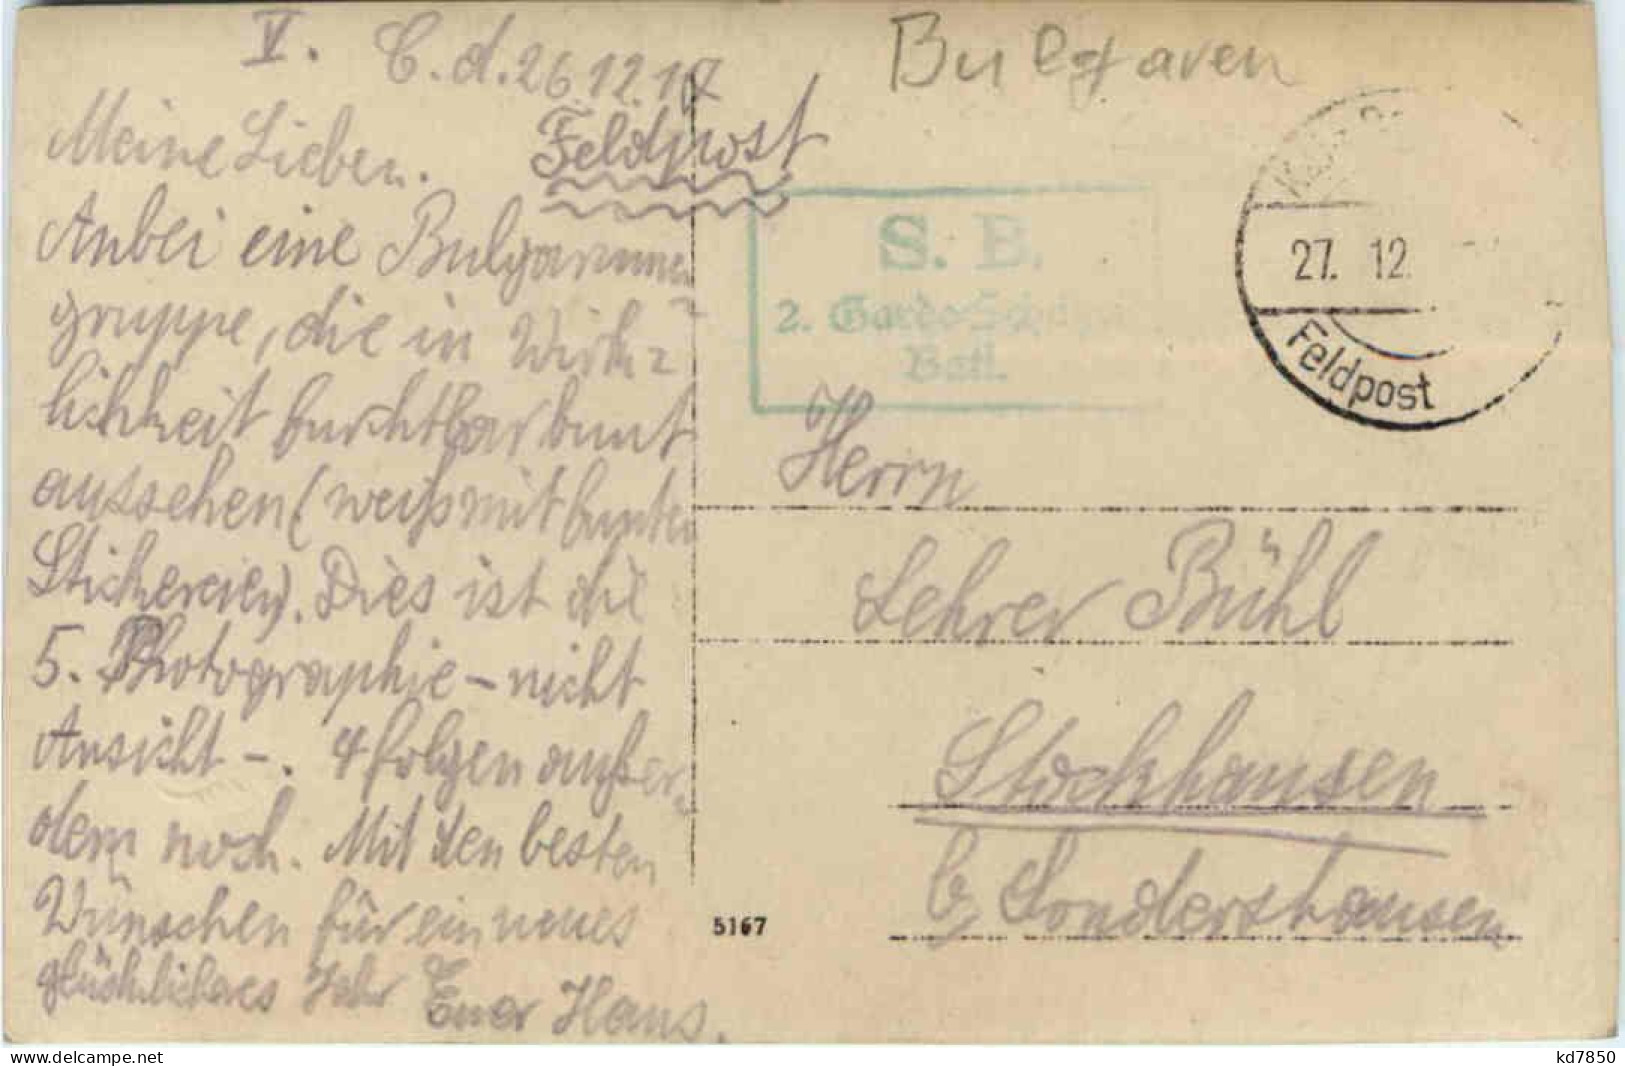 V. C. d. 26.12.17
Feldpost
Meine Lieben.
Anbei eine Bulgarinnen
gruppe, die in Wirk=
lichkeit furchtbar bunt
aussehen (weiß mit bunten
Stickereien). Dies ist die
5. Photographie – nicht
Ansicht –. 4 folgen außer=
dem noch. Mit den besten
Wünschen für ein neues
glückliches Jahr Euer Hans.
Bulgaren
S. B.
2. Garde
Batl.
27. 12
Feldpost
Herrn
Lehrer Bühl
Stockhausen
b. Sondershausen
5167
delcampe.net
kd7850